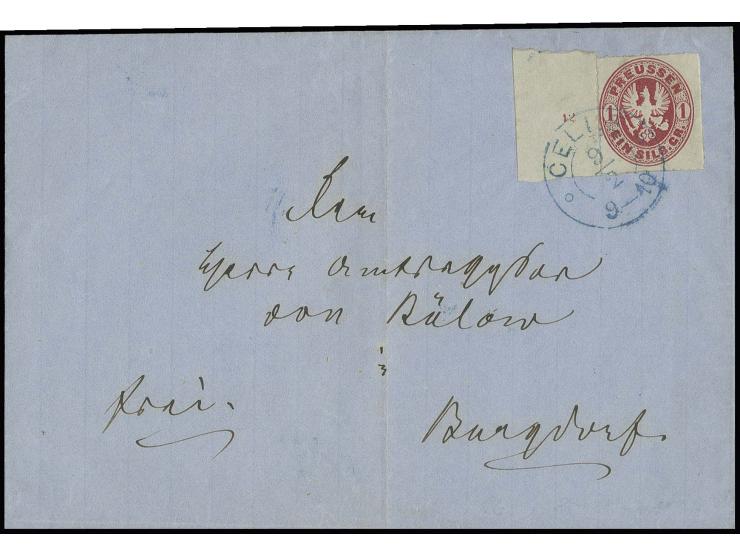 PREUSSEN
1 1
EIN SILB. GR.
CELLE
9/2
9—10
Dem
Herrn Amtsassessor
von Bülow
frei.
Burgdorf.